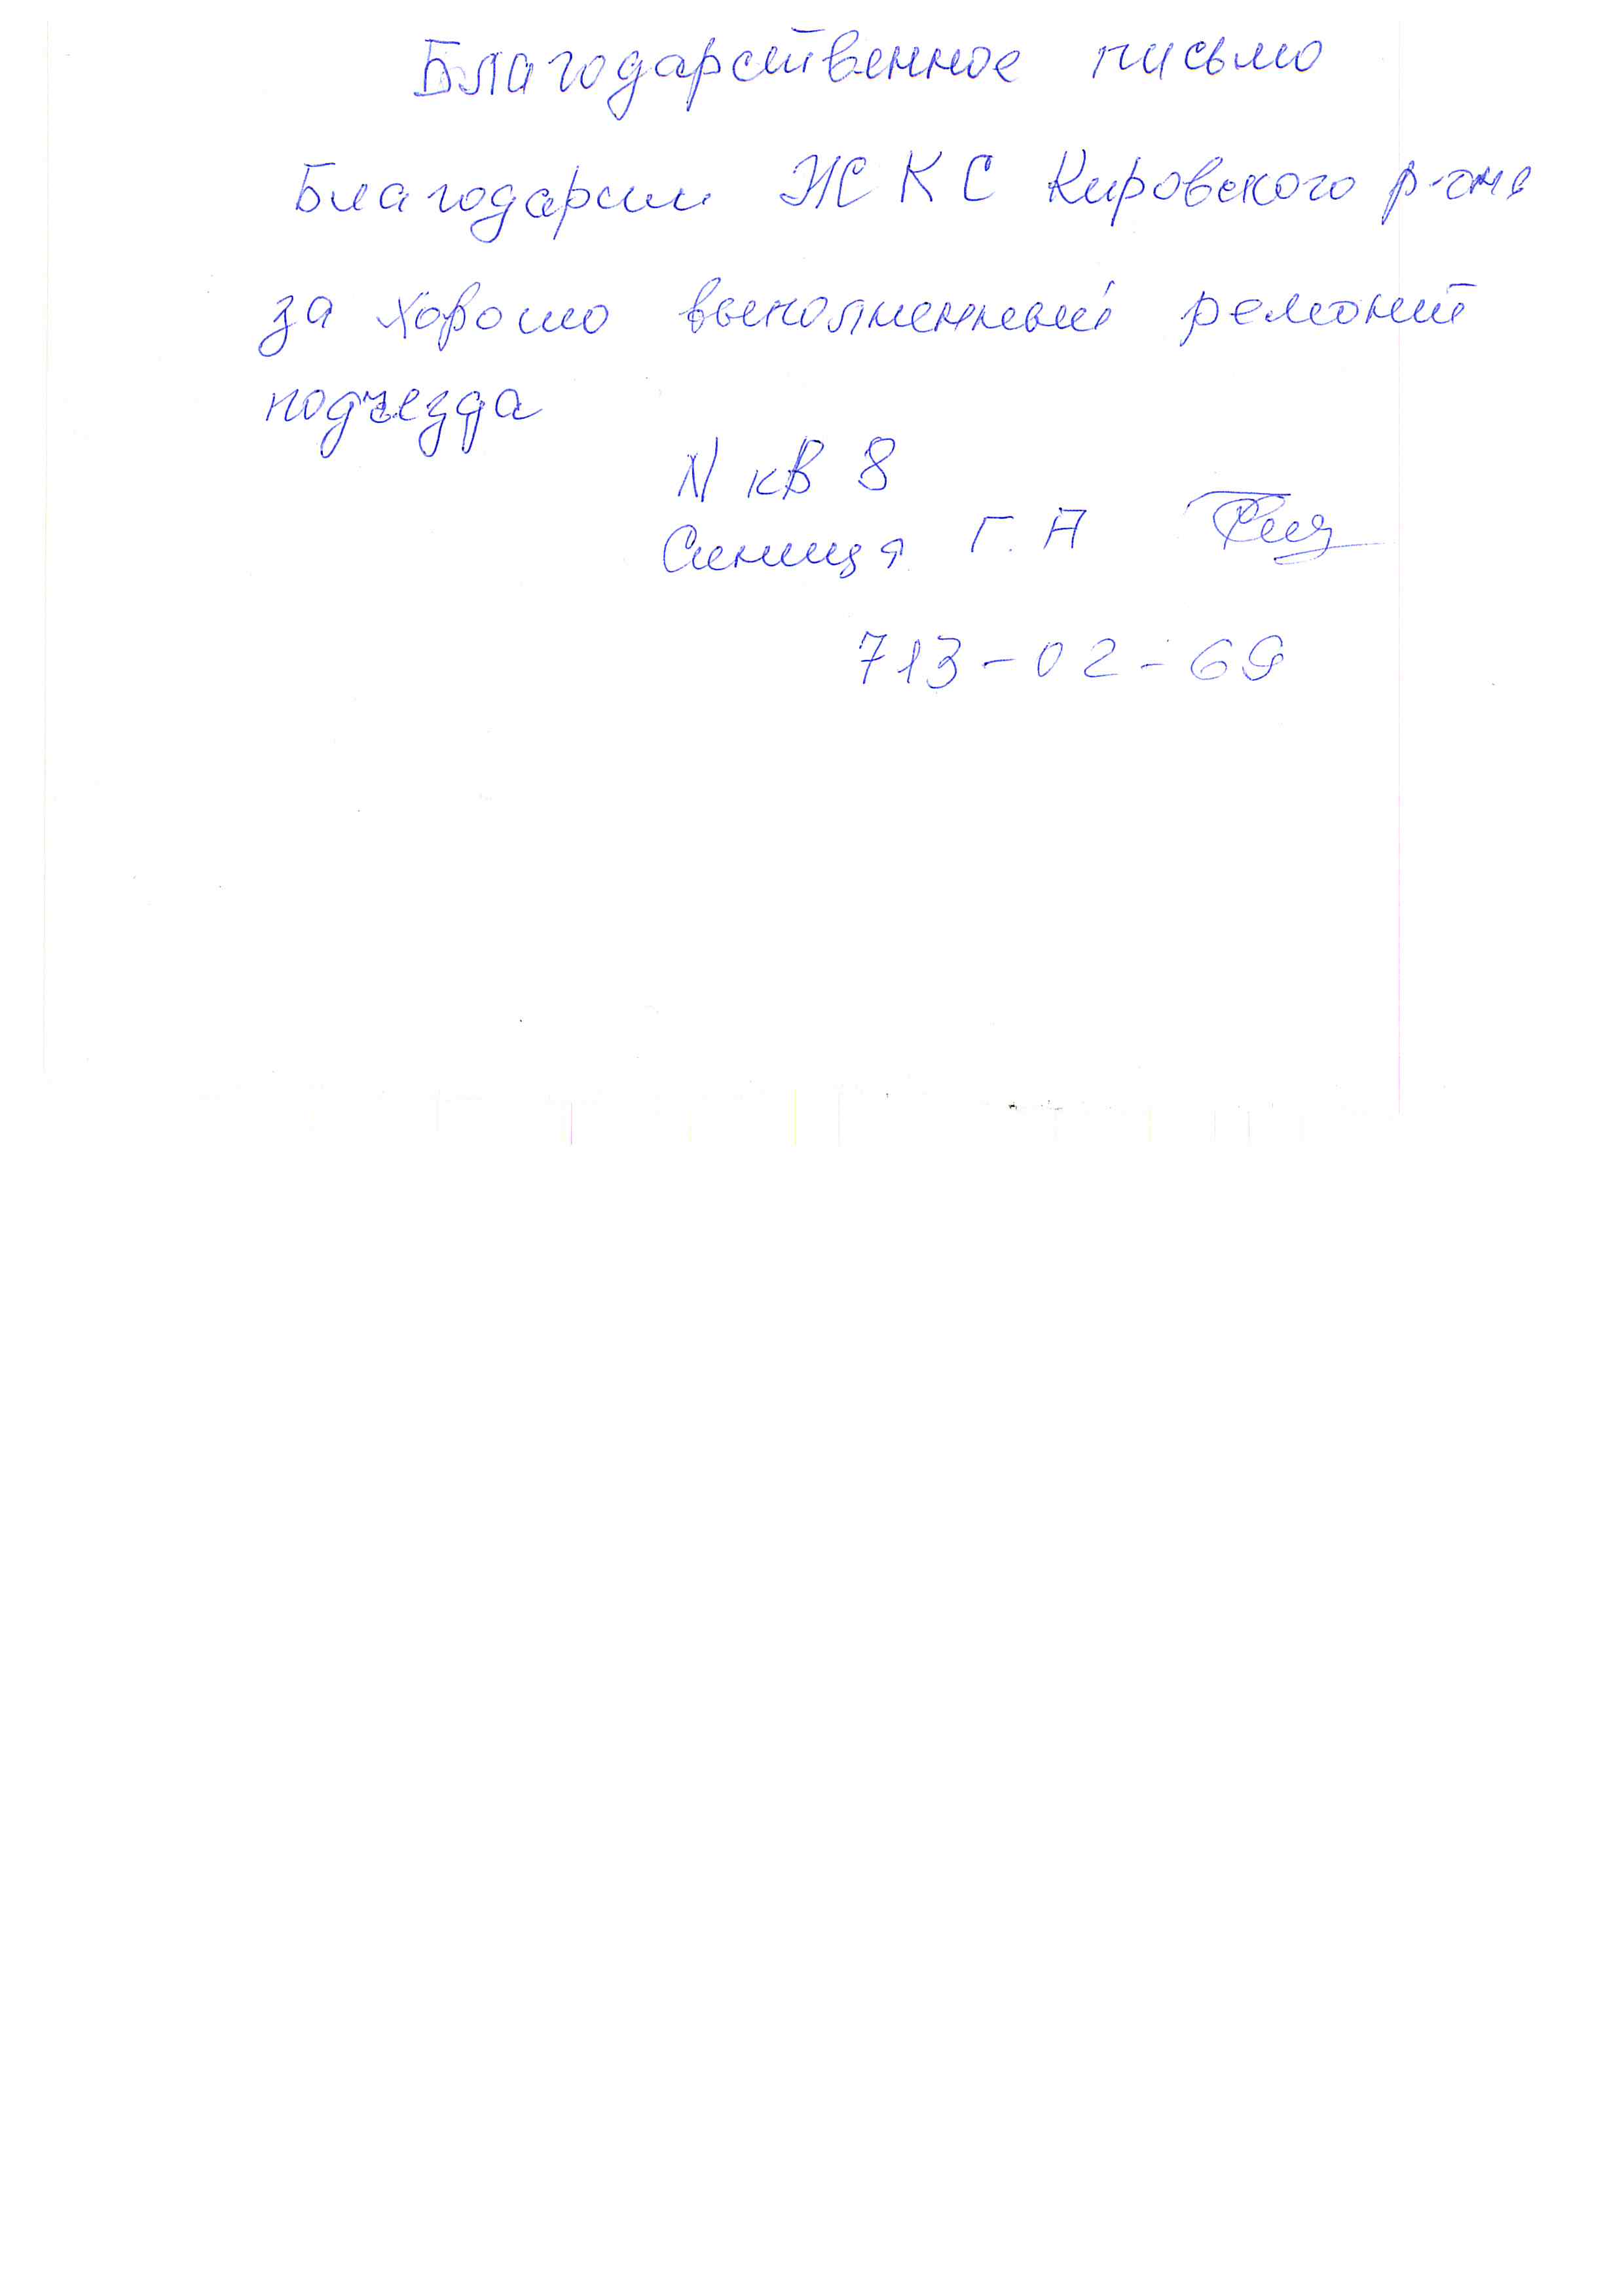 Благодарственное письмо
Благодарим ЖКС Кировского р-она
за хорошо выполненный ремонт
подъезда
N кв 8
Синица Г. А
713-02-69